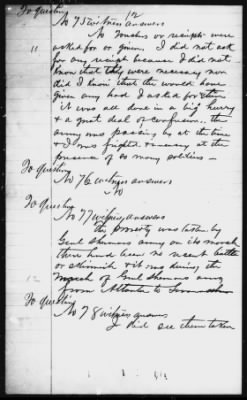 12
To questing
No 75 witness answers
No vouchers or receipts were
asked for or given. I did not ask
for any receipt because I did not
know that they were necessary nor
did I know that the would have
given any had I asked for them
it was all done in a big hurry
& a great deal of confusion. the
army was passing by at the time
& I was frighted & uneasy at the
presence of so many soldiers —
To questing
No 76 witness answers
No
To questing
No 77 witness answers
the property was taken by
Genl Shermans army on its march
there had been no recent battle
or skirmish & it was during the
march of Genl Shermans army
from Atlanta to Savannah
To questing
No 78 witness answers
I did see them taken